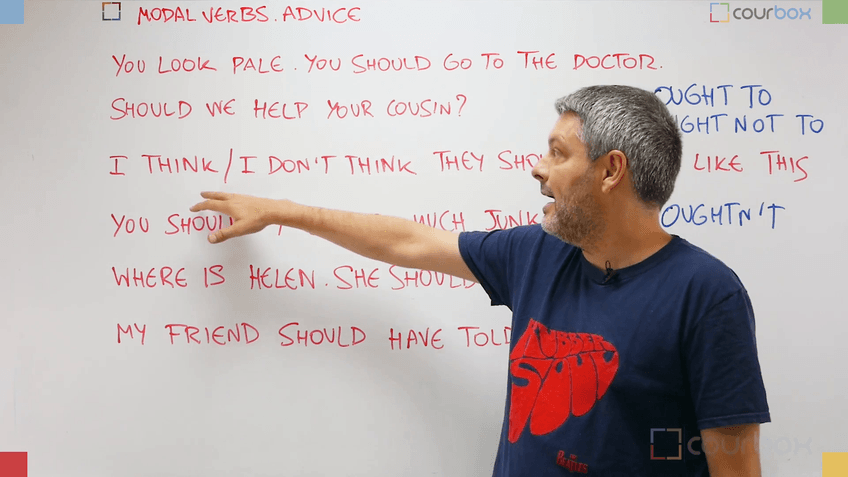 MODAL VERBS. ADVICE
courbox
YOU LOOK PALE. YOU SHOULD GO TO THE DOCTOR.
SHOULD WE HELP YOUR COUSIN?
OUGHT TO
NOT TO
I THINK / I DON'T THINK THEY LIKE THIS
YOU MUCH JUNK
OUGHTN'T
WHERE IS HELEN. SHE SHOULD
MY FRIEND SHOULD HAVE TOLD
RUBBER
SOUL
THE BEATLES
courbox